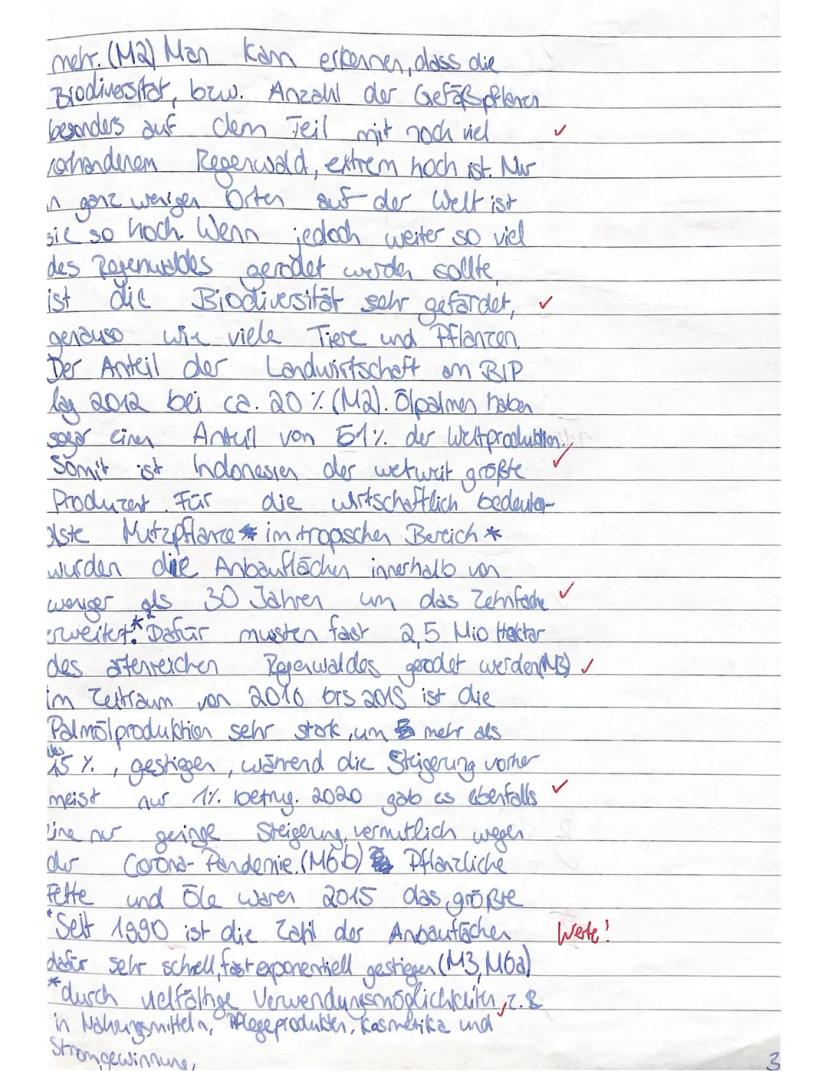 mehr. (M2) Man kann erkennen, dass die
Biodiversität, bzw. Anzahl der Gefäßpflanzen
besonders auf dem Teil mit noch viel
vorhandenem Regenwald, extrem hoch ist. Nur
in ganz wenigen Orten auf der Welt ist
sie so hoch. Wenn jedoch weiter so viel
des Regenwaldes gerodet werden sollte,
ist die Biodiversität sehr gefärdet,
genauso wie viele Tiere und Pflanzen.
Der Anteil der Landwirtschaft am BIP
lag 2012 bei ca. 20 % (M2). Ölpalmen haben
sogar einen Anteil von 51%. der Weltproduktion.
Somit ist Indonesien der weltweit größte
Produzent. Für die wirtschaftlich bedeuten-
dste Nutzpflanze * im tropischen Bereich *
wurden die Anbauflächen innerhalb von
weniger als 30 Jahren um das Zehnfache
erweitert.* Dafür mussten fast 2,5 Mio Hektar
des artenreichen Regenwaldes gerodet werden(M3)
im Zeitraum von 2010 bis 2015 ist die
Palmölproduktion sehr stark, um mehr als
15 %, gestiegen, während die Steigerung vorher
meist nur 1%. betrug. 2020 gab es ebenfalls
eine nur geringe Steigerung, vermutlich wegen
der Corona-Pandemie. (M6b) Pflanzliche
Fette und Öle waren 2015 das größte
*Seit 1990 ist die Zahl der Anbauflächen Werte!
dafür sehr schnell, fast exponentiell gestiegen (M3, M6a)
*durch vielfältige Verwendungsmöglichkeiten, z.B
in Nahrungsmitteln, Pflegeprodukten, Kosmetika und
Stromgewinnung,
3